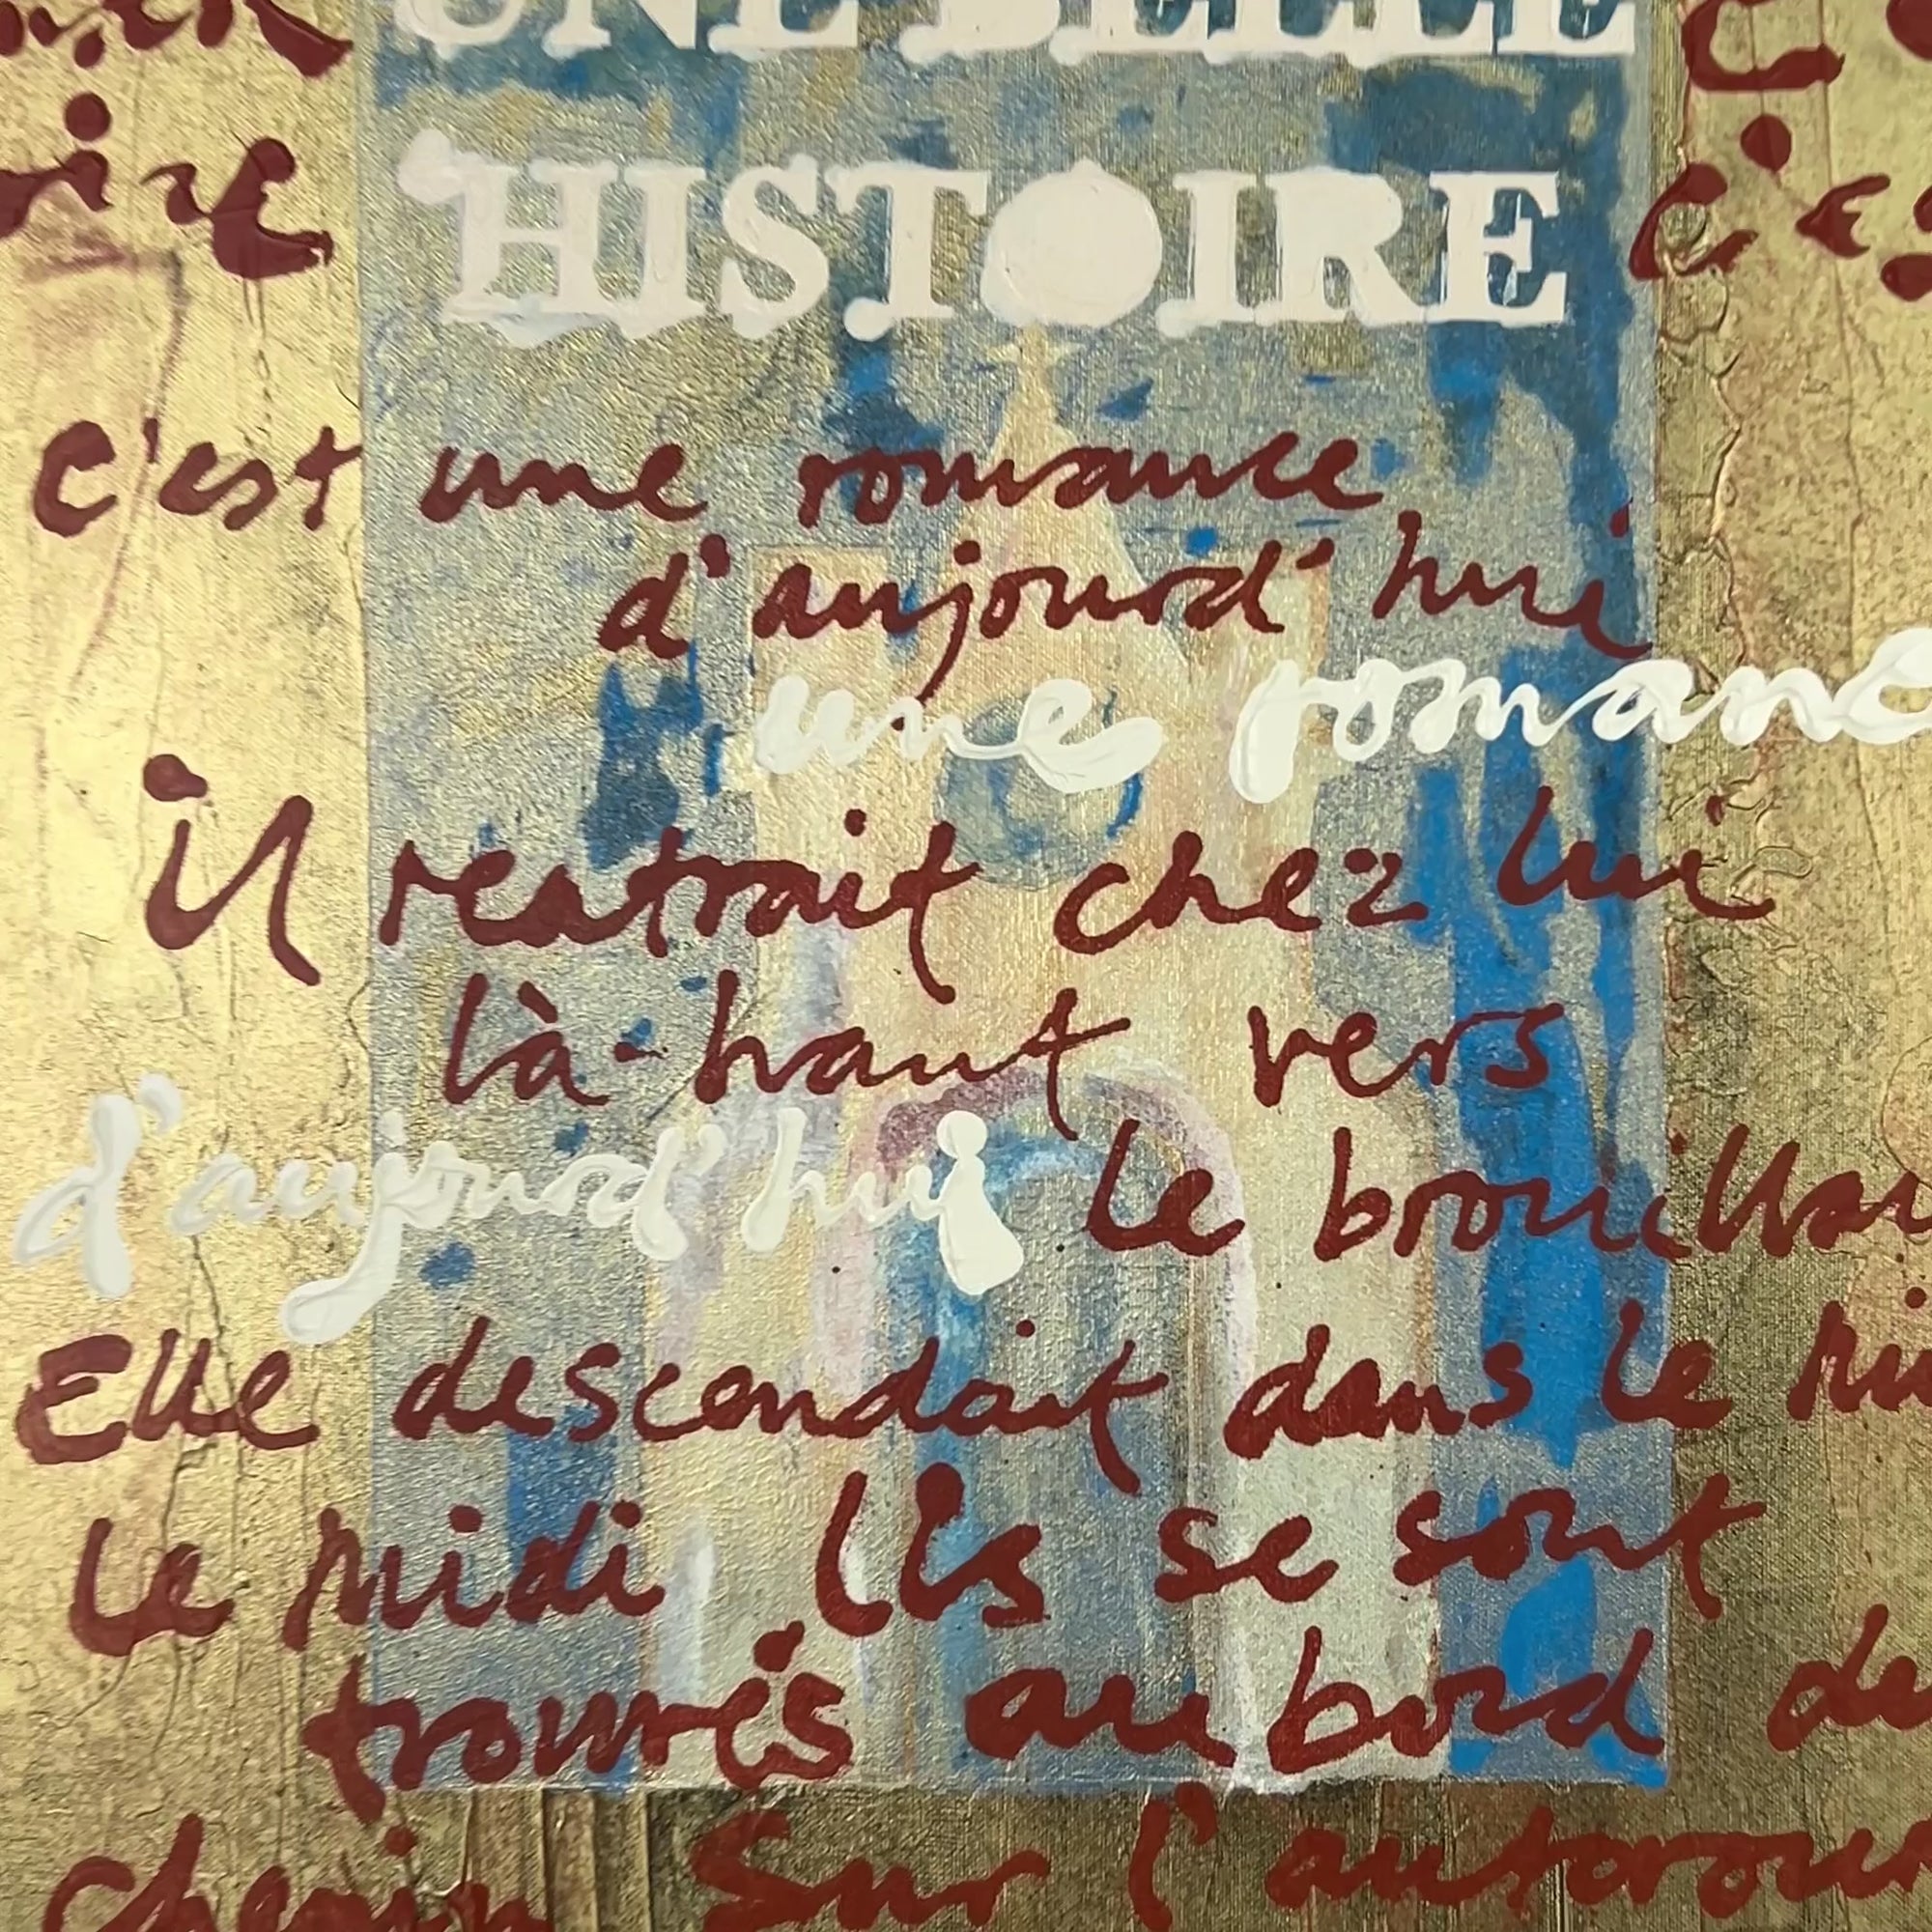 UNE BELLE
HISTOIRE
c'est une romance
d'aujourd'hui
une romanc
il rentrait chez lui
là-haut vers
d'aujourd'hui le brouillar
Elle descendait dans le mi
le midi Ils se sont
trouvés au bord du
chemin sur l'autorou